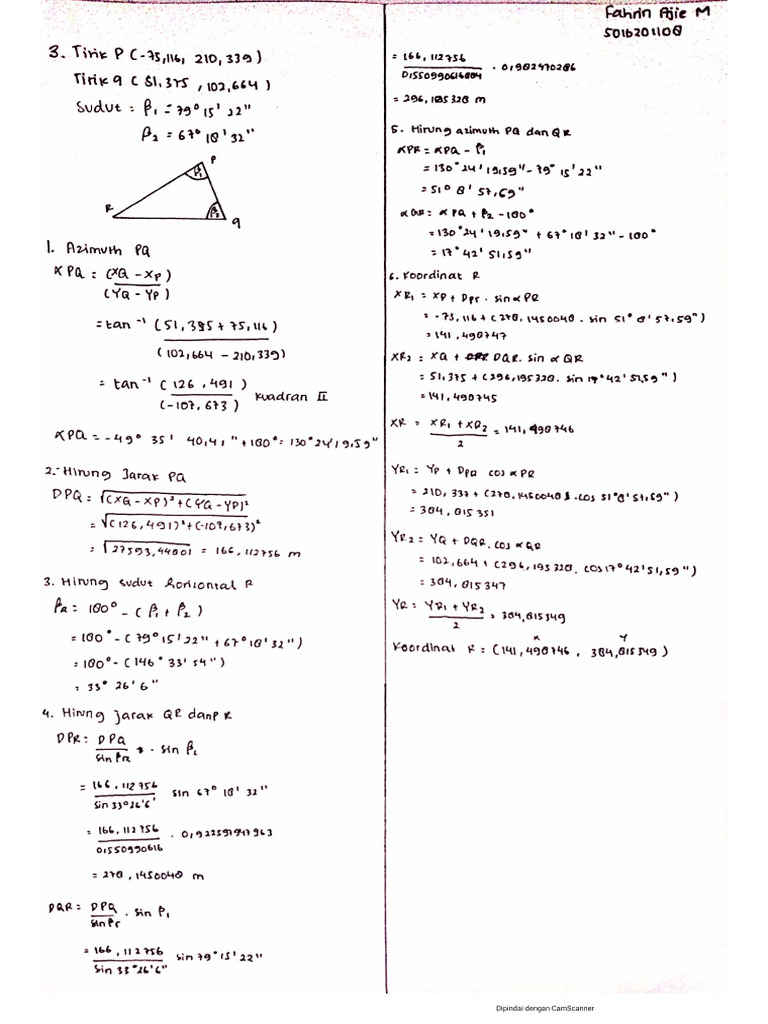 Fahrin Ajie M
5016201108
3. Titik P (-75,116, 210,339)
Titik q (51,375, 102,664)
Sudut : β₁ = 79° 15' 22"
β₂ = 67° 18' 32"
P
β₁
R
β₂
q
1. Azimuth PQ
αPQ = (XQ - XP)
(YQ - YP)
= tan⁻¹ (51,375 + 75,116)
(102,664 - 210,339)
= tan⁻¹ (126,491)
(-107,673) Kuadran II
αPQ = -49° 35' 40,41" + 180° = 130° 24' 19,59"
2. Hitung Jarak PQ
DPQ = √(XQ - XP)² + (YQ - YP)²
= √(126,491)² + (-107,673)²
= √27593,44801 = 166,112756 m
3. Hitung sudut horizontal R
βR = 180° - (β₁ + β₂)
= 180° - (79° 15' 22" + 67° 18' 32")
= 180° - (146° 33' 54")
= 33° 26' 6"
4. Hitung jarak QR dan PR
DPR = DPQ
sin βR . sin β₂
= 166,112756
sin 33°26'6" sin 67° 18' 32"
= 166,112756
0,550990616 . 0,922597947963
= 278,1450048 m
DQR = DPQ
sin βr . sin β₁
= 166,112756
sin 33°26'6" sin 79° 15' 22"
= 166,112756
0,550990616804 . 0,982470286
= 296,195328 m
5. Hitung azimuth PQ dan QR
αPR = αPQ - β₁
= 130° 24' 19,59" - 79° 15' 22"
= 51° 8' 57,59"
αQR = αPQ + β₂ - 180°
= 130° 24' 19,59" + 67° 18' 32" - 180°
= 17° 42' 51,59"
6. Koordinat R
XR₁ = XP + Dpr . sin αPR
= -75,116 + (278,1450048 . sin 51° 8' 57,59")
= 141,490747
XR₂ = XQ + DQR. sin αQR
= 51,375 + (296,195328. sin 17° 42' 51,59")
= 141,490745
XR = XR₁ + XR₂ = 141,490746
2
YR₁ = YP + DPR cos αPR
= 210,337 + (278,1450048 . cos 51°8'57,59")
= 384,815351
YR₂ = YQ + DQR. cos αQR
= 102,664 + (296,195328. cos 17° 42' 51,59")
= 384,815347
YR = YR₁ + YR₂ = 384,815349
2
X Y
Koordinat R = (141,490746, 384,815349)
Dipindai dengan CamScanner